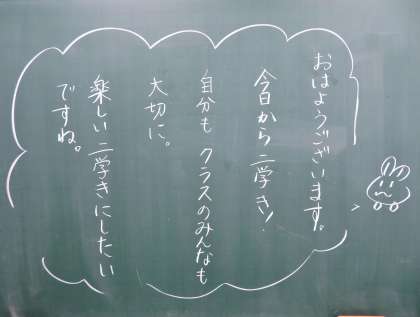 おはようございます。
今日から二学き!
自分も クラスのみんなも
大切に。
楽しい二学きにしたい
ですね。